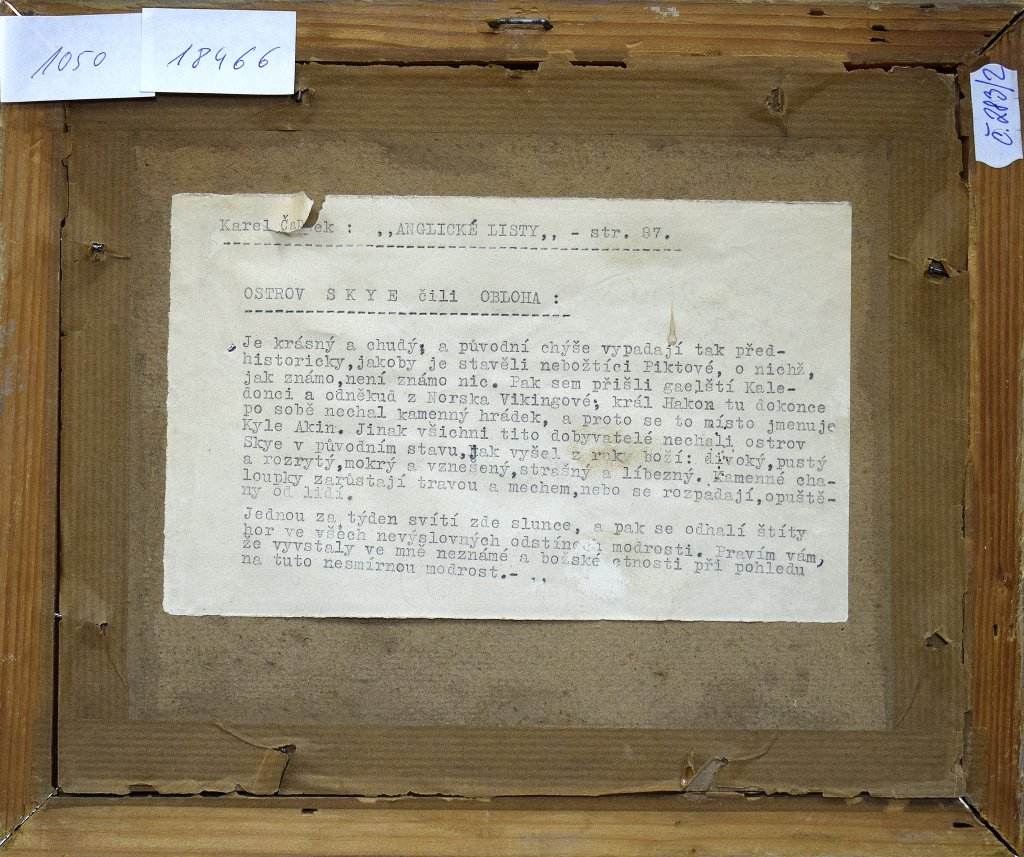 1050
18466
č. 283/2
Karel Čapek : ,,ANGLICKÉ LISTY,, - str. 87.
OSTROV S K Y E čili OBLOHA :
,,Je krásný a chudý; a původní chýše vypadají tak před-
historicky,jakoby je stavěli nebožtíci Piktové, o nichž,
jak známo,není známo nic. Pak sem přišli gaelští Kale-
donci a odněkud z Norska Vikingové; král Hakon tu dokonce
po sobě nechal kamenný hrádek, a proto se to místo jmenuje
Kyle Akin. Jinak všichni tito dobyvatelé nechali ostrov
Skye v původním stavu,jak vyšel z ruky boží: divoký,pustý
a rozrytý,mokrý a vznešený,strašný a líbezný. Kamenné cha-
loupky zarůstají travou a mechem,nebo se rozpadají,opuště-
ny od lidí.
Jednou za týden svítí zde slunce, a pak se odhalí štíty
hor ve všech nevýslovných odstínech modrosti. Pravím vám,
že vyvstaly ve mně neznámé a božské ctnosti při pohledu
na tuto nesmírnou modrost.- ,,